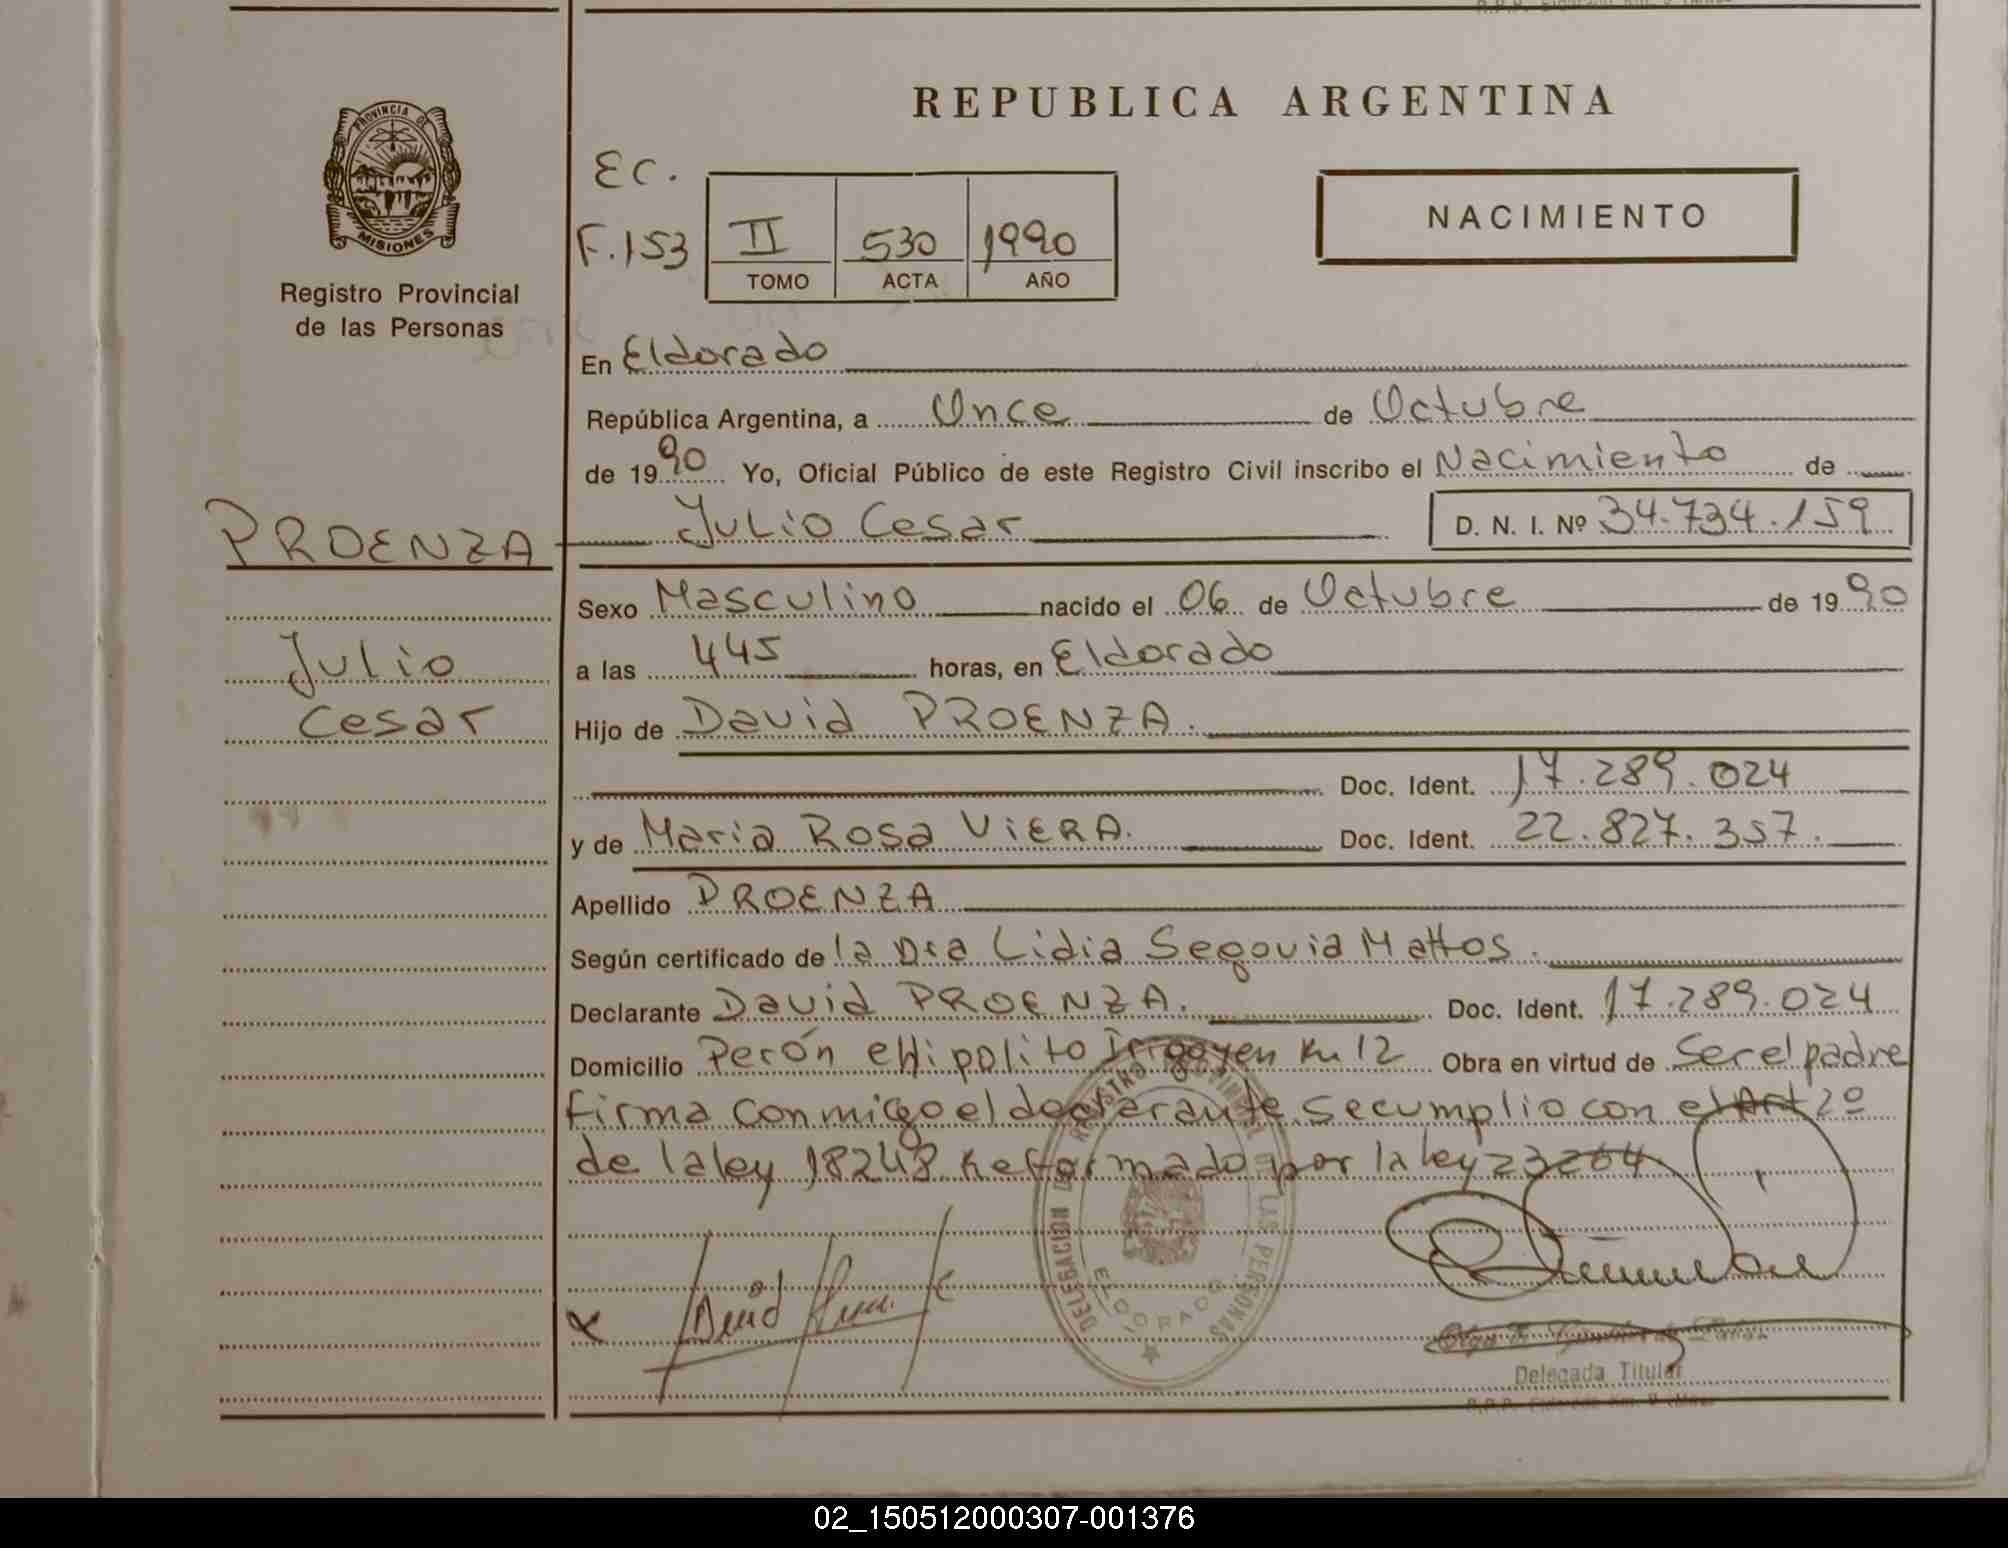 REPUBLICA ARGENTINA
PROVINCIA DE
MISIONES
Registro Provincial
de las Personas
EC.
F.153
II 530 1990
TOMO ACTA AÑO
NACIMIENTO
En Eldorado
República Argentina, a Once de Octubre
de 1990 Yo, Oficial Público de este Registro Civil inscribo el Nacimiento de
PROENZA Julio Cesar D. N. I. Nº 34.734.159
Sexo Masculino nacido el 06 de Octubre de 1990
Julio
a las 445 horas, en Eldorado
Cesar
Hijo de David PROENZA.
Doc. Ident. 17.289.024
y de Maria Rosa ViERA. Doc. Ident. 22.827.357.
Apellido PROENZA
Según certificado de la Dra Lidia Segovia Mattos.
Declarante David PROENZA. Doc. Ident. 17.289.024
Domicilio Perón e Hipolito Irigoyen Km 12 Obra en virtud de Ser el padre
firma conmigo el declarante. Se cumplio con el Art 2º
de la ley 18248 Reformado por la ley 23264
DELEGACION DEL REGISTRO PROVINCIAL DE LAS PERSONAS
ELDORADO
David
Delegada Titular
02_150512000307-001376